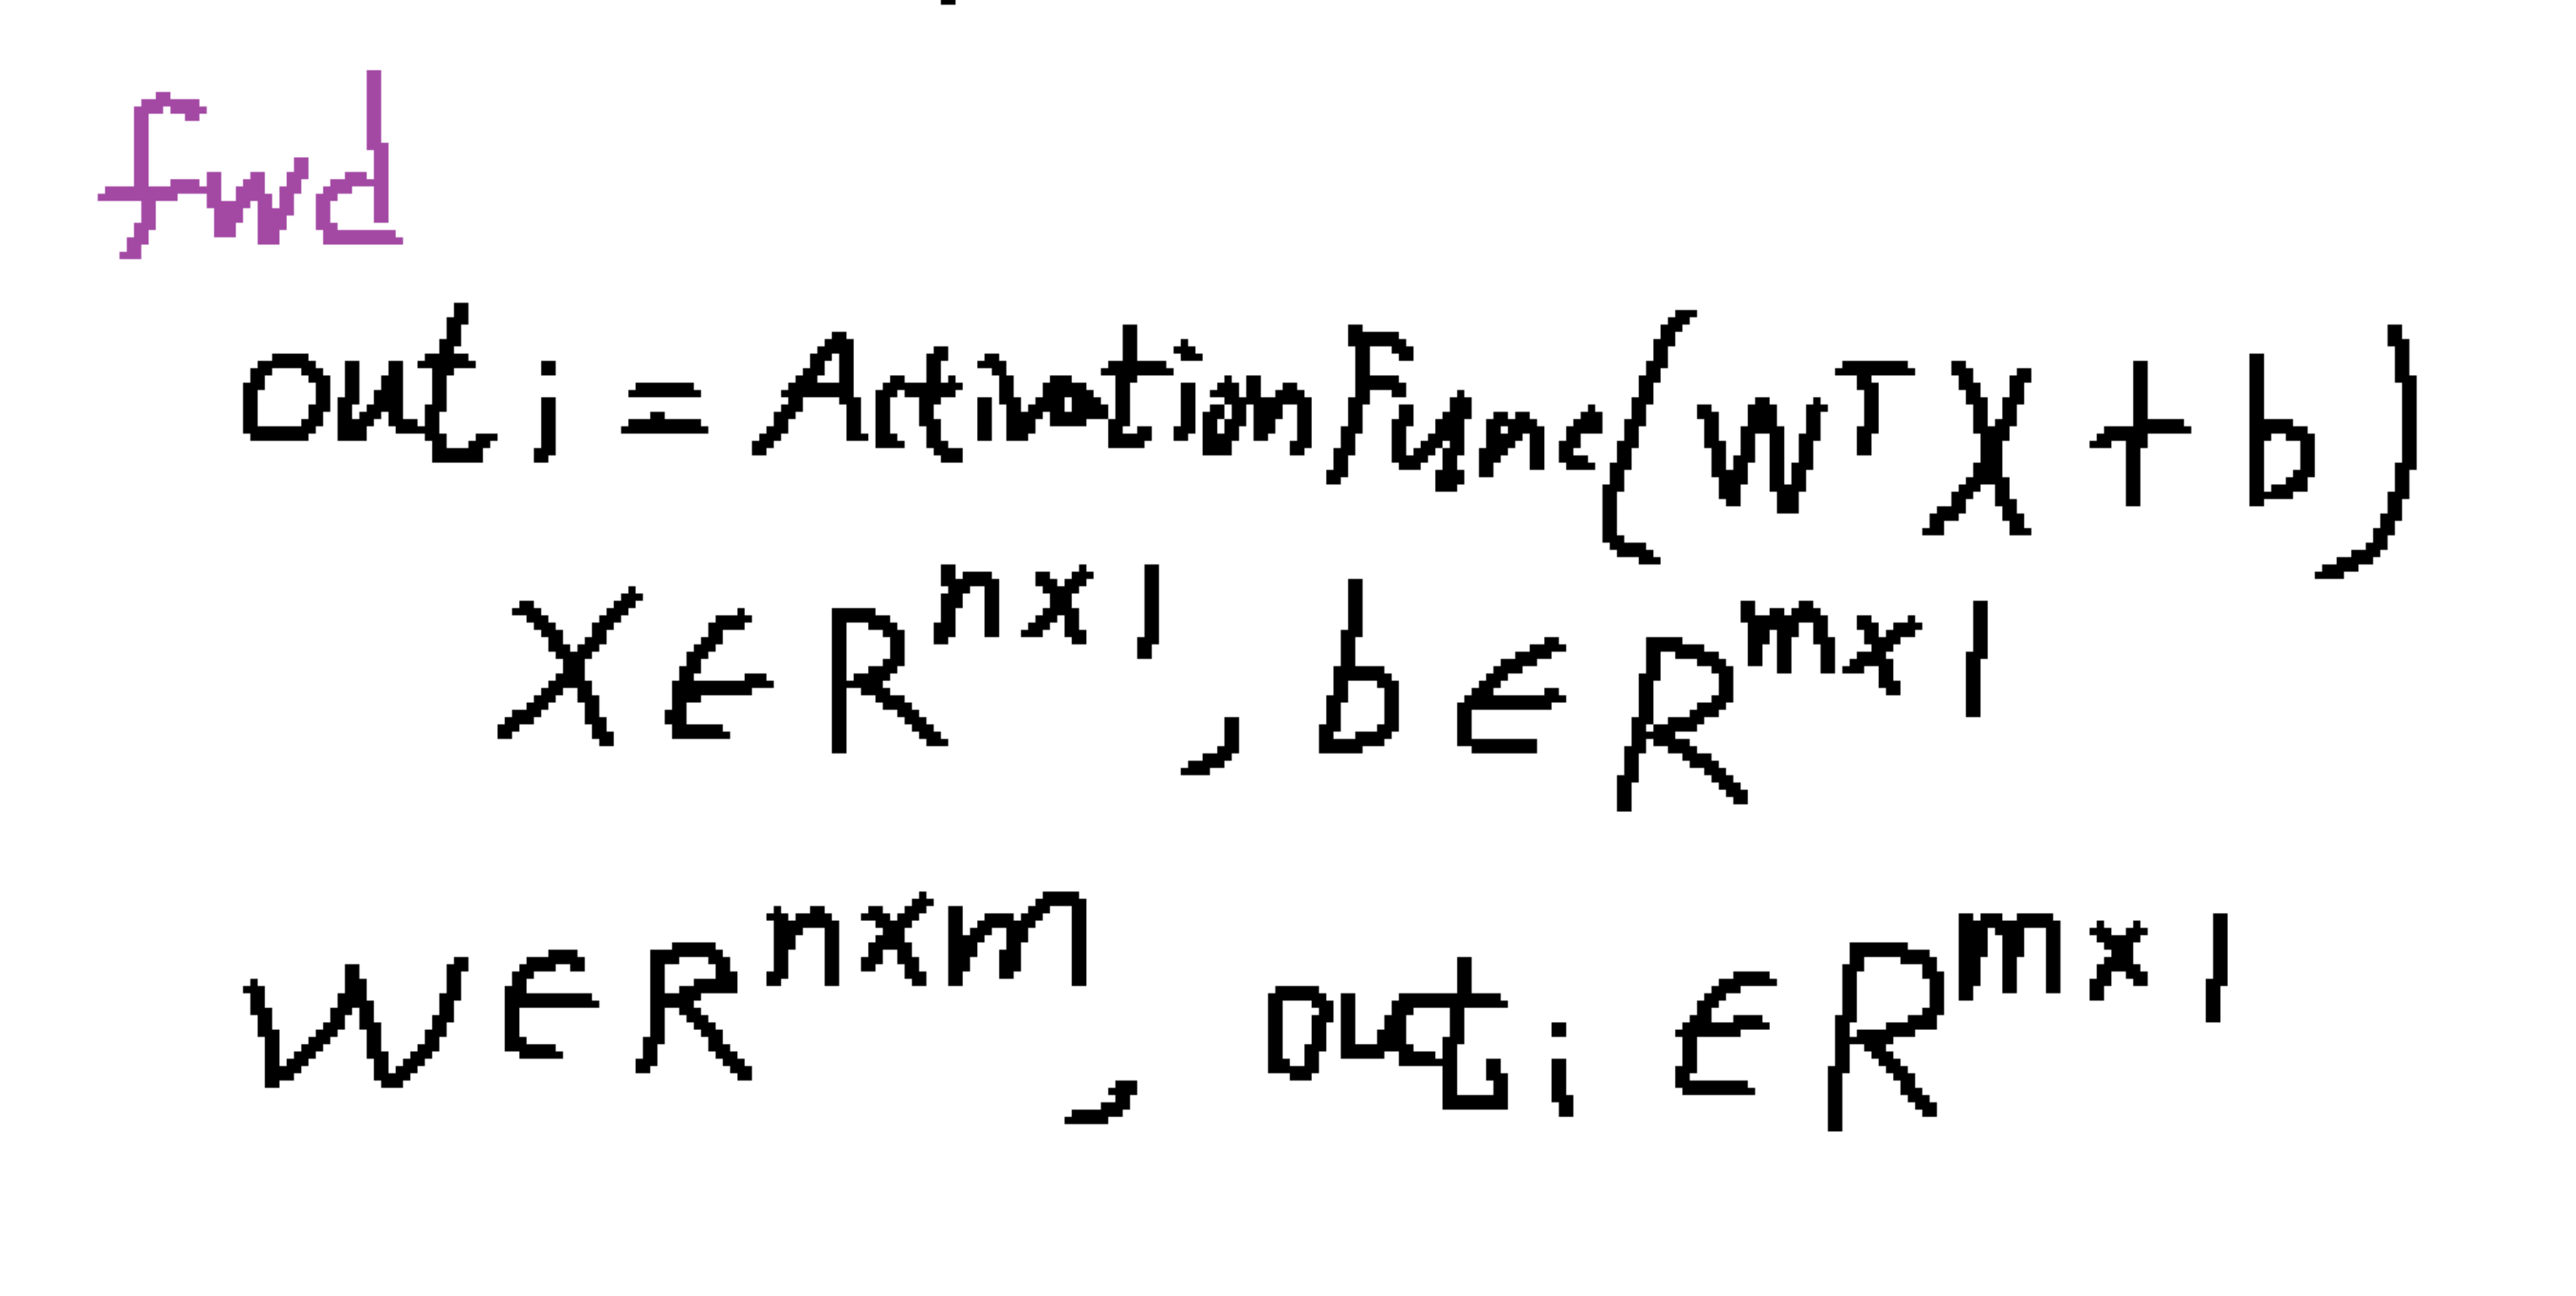 fwd
out i = ActivationFunc(Wᵀ X + b)
X ∈ Rⁿˣ¹, b ∈ Rᵐˣ¹
W ∈ Rⁿˣᵐ, out i ∈ Rᵐˣ¹